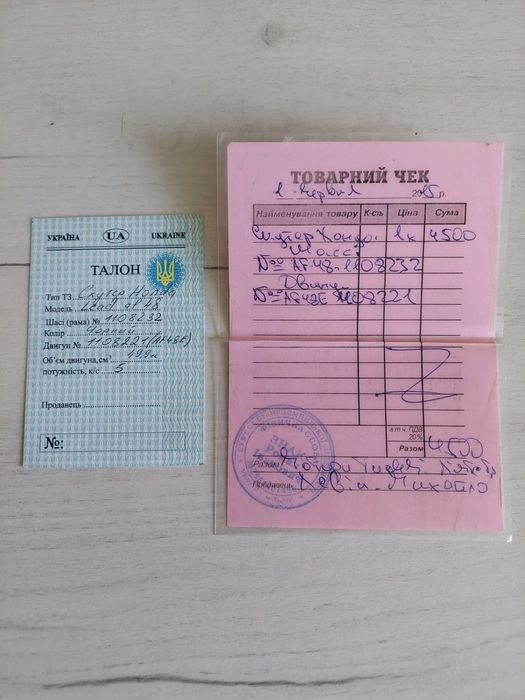 УКРАЇНА UA UKRAINE
ТАЛОН
Тип ТЗ Скутер Honda
Модель Lead AF48
Шасі (рама) № 1108232
Колір Чорний
Двигун № 1108221 (AF48E)
Об'єм двигуна, см³ 49,9
потужність, к/с 5
Продавець
№:
ТОВАРНИЙ ЧЕК
1 червня 2015 р.
Найменування товару К-сть Ціна Сума
Скутер Хонда 1к 4500
Шассі
№ AF48-1108232
Двигун
№ AF48E 1108221
в т.ч. ПДВ
20%
Разом 4500
Разом:
Продавець